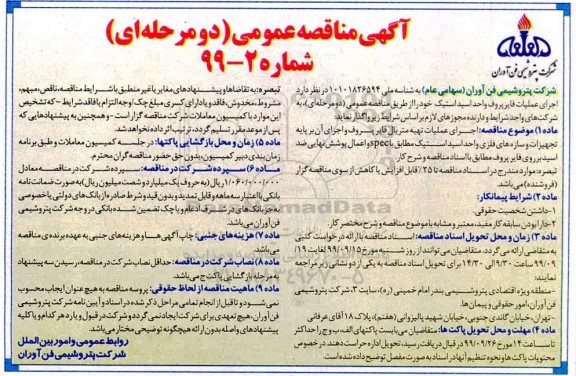 آگهی مناقصه عمومی (دو مرحله‌ای)
شماره ۲-۹۹
شرکت پتروشیمی فن آوران
شرکت پتروشیمی فن آوران (سهامی عام) به شناسه ملی ۱۰۱۰۱۸۲۶۵۹۴ در نظر دارد
اجرای عملیات فایر پروف واحد اسید استیک خود را از طریق مناقصه عمومی (دو مرحله‌ای)، به
شرکت های واجد شرایط و دارنده مجوزهای لازم بر اساس شرایط زیر واگذار نماید:
ماده ۱) موضوع مناقصه: اجرای عملیات تهیه متریال فایر پروف و اجرای آن بر پایه
تجهیزات و سازه های فلزی واحد اسید استیک مطابق spec و اعمال پوشش نهایی ضد
اسید بر روی فایر پروف مطابق با اسناد مناقصه و شرح کار
تبصره: موارد مندرج در اسناد مناقصه تا ۲۵٪ قابل افزایش یا کاهش از سوی مناقصه گزار
(فروشنده) می باشد.
ماده ۲) شرایط پیمانکار:
۱-داشتن شخصیت حقوقی
۲-دارا بودن سابقه کار مفید، معتبر و مشابه با موضوع مناقصه و شرح مختصر کار.
ماده ۳) زمان و محل تحویل اسناد مناقصه: اسناد مناقصه با ارائه درخواست کتبی
به متقاضی ارائه می گردد. متقاضیان می توانند از روز شنبه مورخ ۹۹/۰۹/۱۵ لغایت ۱۹/
۹۹/۰۹ ساعت ۹/۳۰ الی ۱۴/۳۰ برای تحویل اسناد مناقصه به یکی از دو نشانی زیر مراجعه
نمایند:
-منطقه ویژه اقتصادی پتروشیمی بندر امام خمینی (ره)، سایت ۳، شرکت پتروشیمی
فن آوران، امور حقوقی و پیمان ها.
-تهران، خیابان گاندی جنوبی، خیابان شهید پالیزوانی (هفتم)، پلاک ۱۸ آقای عرفانی
ماده ۴) مهلت و محل تحویل پاکت ها: متقاضیان می بایست پاکتهای الف، ب و ج را حداکثر
تا ساعت ۱۴ مورخ ۹۹/۰۹/۲۶ در قبال دریافت رسید، تحویل اداره حراست دهند. در خصوص
محتویات پاکت ها و نحوه تنظیم آنها در اسناد به صورت مفصل توضیح داده شده است.
تبصره: به تقاضاها و پیشنهادهای مغایر یا غیر منطبق با شرایط مناقصه، ناقص، مبهم،
مشروط، مخدوش، فاقد و یا دارای کسری مبلغ چک/ وجه التزام یا فاقد شرایط - که تشخیص
این موارد با کمیسیون معاملات شرکت مناقصه گزار است - و همچنین به پیشنهادهایی که
پس از موعد مقرر تسلیم گردد، ترتیب اثر داده نخواهد شد.
ماده ۵) زمان و محل بازگشایی پاکتها: در جلسه کمیسیون معاملات و طبق برنامه
زمان بندی دبیر کمیسیون، بدون حق حضور مناقصه گران محترم.
ماده ۶) سپرده شرکت در مناقصه: سپرده شرکت در مناقصه معادل
۱/۰۶۰/۰۰۰/۰۰۰ ریال (به حروف یک میلیارد و شصت میلیون ریال) به صورت ضمانت نامه
بانکی با اعتبار سه ماهه و قابل تمدید و بدون قید و شرط صادره از بانک های دولتی یا خصوصی
به جز بانک های در شرف ادغام و یا چک تضمین شده بانکی در وجه شرکت پتروشیمی
فن آوران می باشد.
ماده ۷) هزینه های جنبی: چاپ آگهی ها و هزینه های جنبی به عهده برنده ی مناقصه
می باشد.
ماده ۸) نصاب شرکت در مناقصه: حداقل نصاب شرکت در مناقصه، رسیدن سه پیشنهاد
به مرحله بازگشایی پاکت ج می باشد.
ماده ۹) ماهیت مناقصه از لحاظ حقوقی: پروسه مناقصه به هیچ عنوان ایجاب محسوب
نمی شود و تا قبل از انجام تمامی مراحل ذکر شده در اسناد و آیین نامه شرکت پتروشیمی
فن آوران، هیچ تعهدی برای شرکت ایجاد نمی گردد و شرکت در قبول و یا رد هر کدام و یا کلیه
پیشنهادهای واصله بدون ارائه هیچگونه توضیحی مختار می باشد.
روابط عمومی و امور بین الملل
شرکت پتروشیمی فن آوران